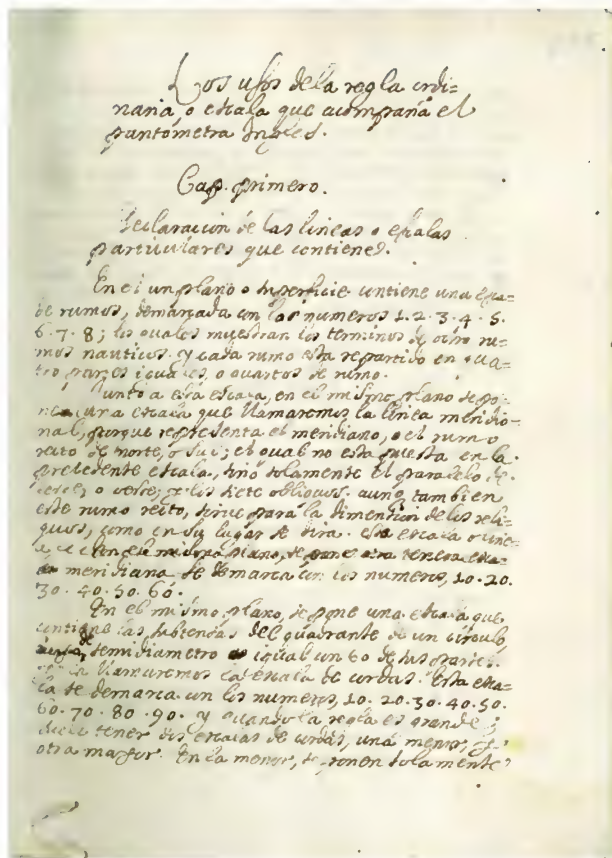 Los usos de la regla ordi=
naria, o escala que acompaña el
pantómetra Ingles.
Cap. primero.
Declaracion de las lineas o escalas
particulares que contiene.
En el un plano o superficie contiene una esca=
de rumos, demarcada con los numeros 1. 2. 3. 4. 5.
6. 7. 8; los quales muestran los terminos de ocho ru=
mos nauticos. y cada rumo esta repartido en qua=
tro partes iguales, o quartos de rumo.
Junto a esta escala, en el mismo plano se po=
ne otra escala que llamaremos la linea meridio=
nal, porque representa el meridiano, o el rumo
recto de norte, o Sur; el qual no esta puesta en la
precedente escala, sino solamente el paradelo de
leste, o oeste, y los siete obliquos. aunq tambien
este rumo recto, sirve para la dimension de los reli=
quos, como en su lugar se dira. Esta escala o line=
en el mismo plano, se pone otra tercera esca=
meridiana se demarca con los numeros, 10. 20.
30. 40. 50. 60.
En el mismo plano, se pone una escala que
contiene las subtensas del quadrante de un circulo
semidiametro igual un 60 de sus partes.
llamaremos la escala de cordas. Esta esca=
la se demarca con los numeros, 10. 20. 30. 40. 50.
60. 70. 80. 90. y quando la regla es grande,
suele tener dos escalas de cordas, una menor, y
otra mayor. En la menor, se ponen solamente